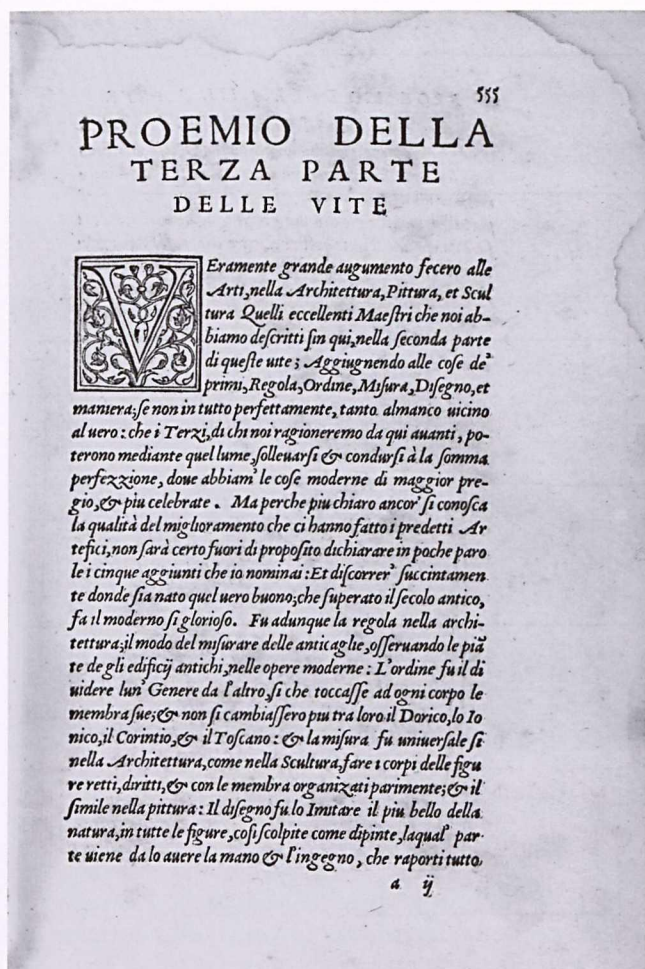 555
PROEMIO DELLA
TERZA PARTE
DELLE VITE
VEramente grande augumento fecero alle
Arti, nella Architettura, Pittura, et Scul
tura Quelli eccellenti Maestri che noi ab-
biamo descritti sin qui, nella seconda parte
di queste uite; Aggiugnendo alle cose de'
primi, Regola, Ordine, Misura, Disegno, et
maniera; se non in tutto perfettamente, tanto almanco uicino
al uero: che i Terzi, di chi noi ragioneremo da qui auanti, po-
terono mediante quel lume, solleuarsi & condursi à la somma
perfezzione, doue abbiam' le cose moderne di maggior pre-
gio, & piu celebrate. Ma perche piu chiaro ancor' si conosca
la qualità del miglioramento che ci hanno fatto i predetti Ar
tefici, non sarà certo fuori di proposito dichiarare in poche paro
le i cinque aggiunti che io nominai: Et discorrer' succintamen
te donde sia nato quel uero buono; che superato il secolo antico,
fa il moderno si glorioso. Fu adunque la regola nella archi-
tettura; il modo del misurare delle anticaglie, osseruando le piā
te de gli edificij antichi, nelle opere moderne: L'ordine fu il di
uidere lun' Genere da l'altro, si che toccasse ad ogni corpo le
membra sue; & non si cambiassero piu tra loro il Dorico, lo Io
nico, il Corintio, & il Toscano: & la misura fu uniuersale si
nella Architettura, come nella Scultura, fare i corpi delle figu
re retti, diritti, & con le membra organizati parimente; & il
simile nella pittura: Il disegno fu lo Imitare il piu bello della
natura, in tutte le figure, cosi scolpite come dipinte, laqual' par-
te uiene da lo auere la mano & l'ingegno, che raporti tutto
a ij